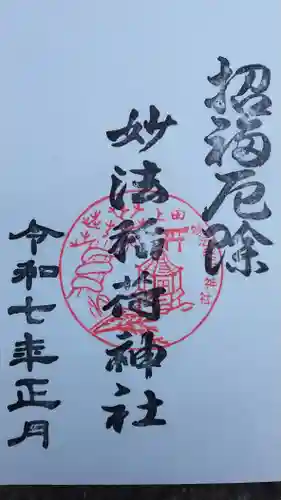 招福厄除
妙法稲荷神社
令和七年正月
上田
神社